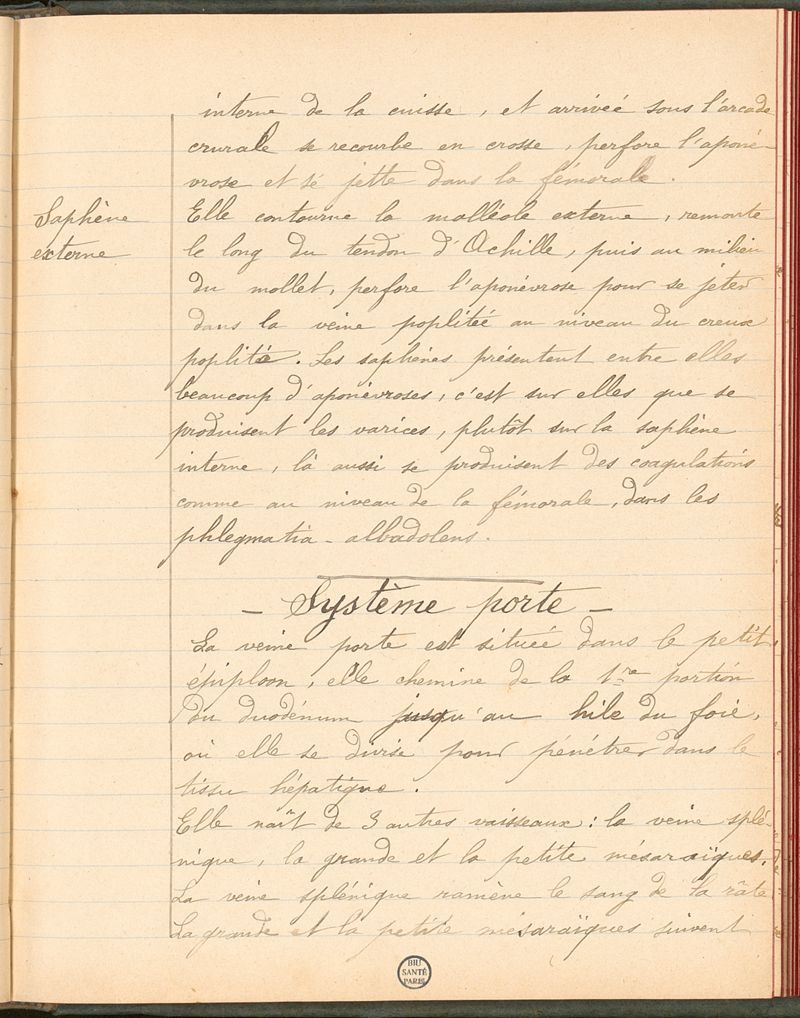 interne de la cuisse, et arrivée sous l'arcade
crurale se recourbe en crosse, perfore l'aponé-
vrose et se jette dans la fémorale.
Saphène
externe
Elle contourne la malléole externe, remonte
le long du tendon d'Achille, puis au milieu
du mollet, perfore l'aponévrose pour se jeter
dans la veine poplitée au niveau du creux
poplitée. Les saphènes présentent entre elles
beaucoup d'aponévroses, c'est sur elles que se
produisent les varices, plutôt sur la saphène
interne, là aussi se produisent des coagulations
comme au niveau de la fémorale, dans les
phlegmatia-albadolens.
- Système porte -
La veine porte est située dans le petit
épiploon, elle chemine de la 1re portion
du duodénum jusqu'au hile du foie,
où elle se divise pour pénétrer dans le
tissu hépatique.
Elle naît de 3 autres vaisseaux: la veine splé-
nique, la grande et la petite mésaraïques.
La veine splénique ramène le sang de la râte
La grande et la petite mésaraïques suivent
BIU
SANTÉ
PARIS